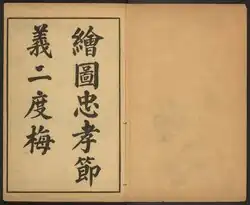 繪圖忠孝節
義二度梅